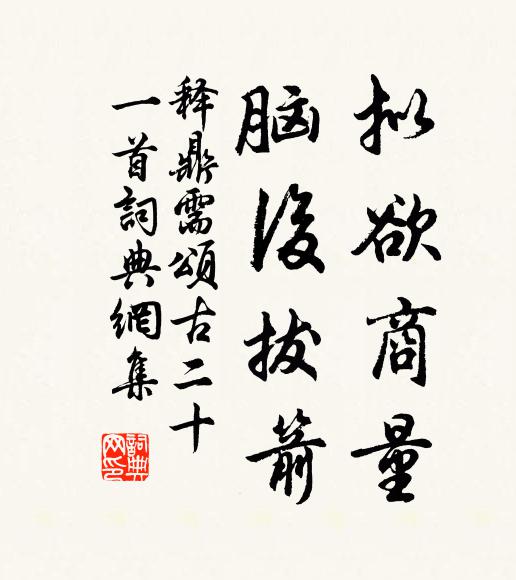 拟欲商量
脑後拔箭
释鼎需頌古二十
一首詞典網集
詞典
网印